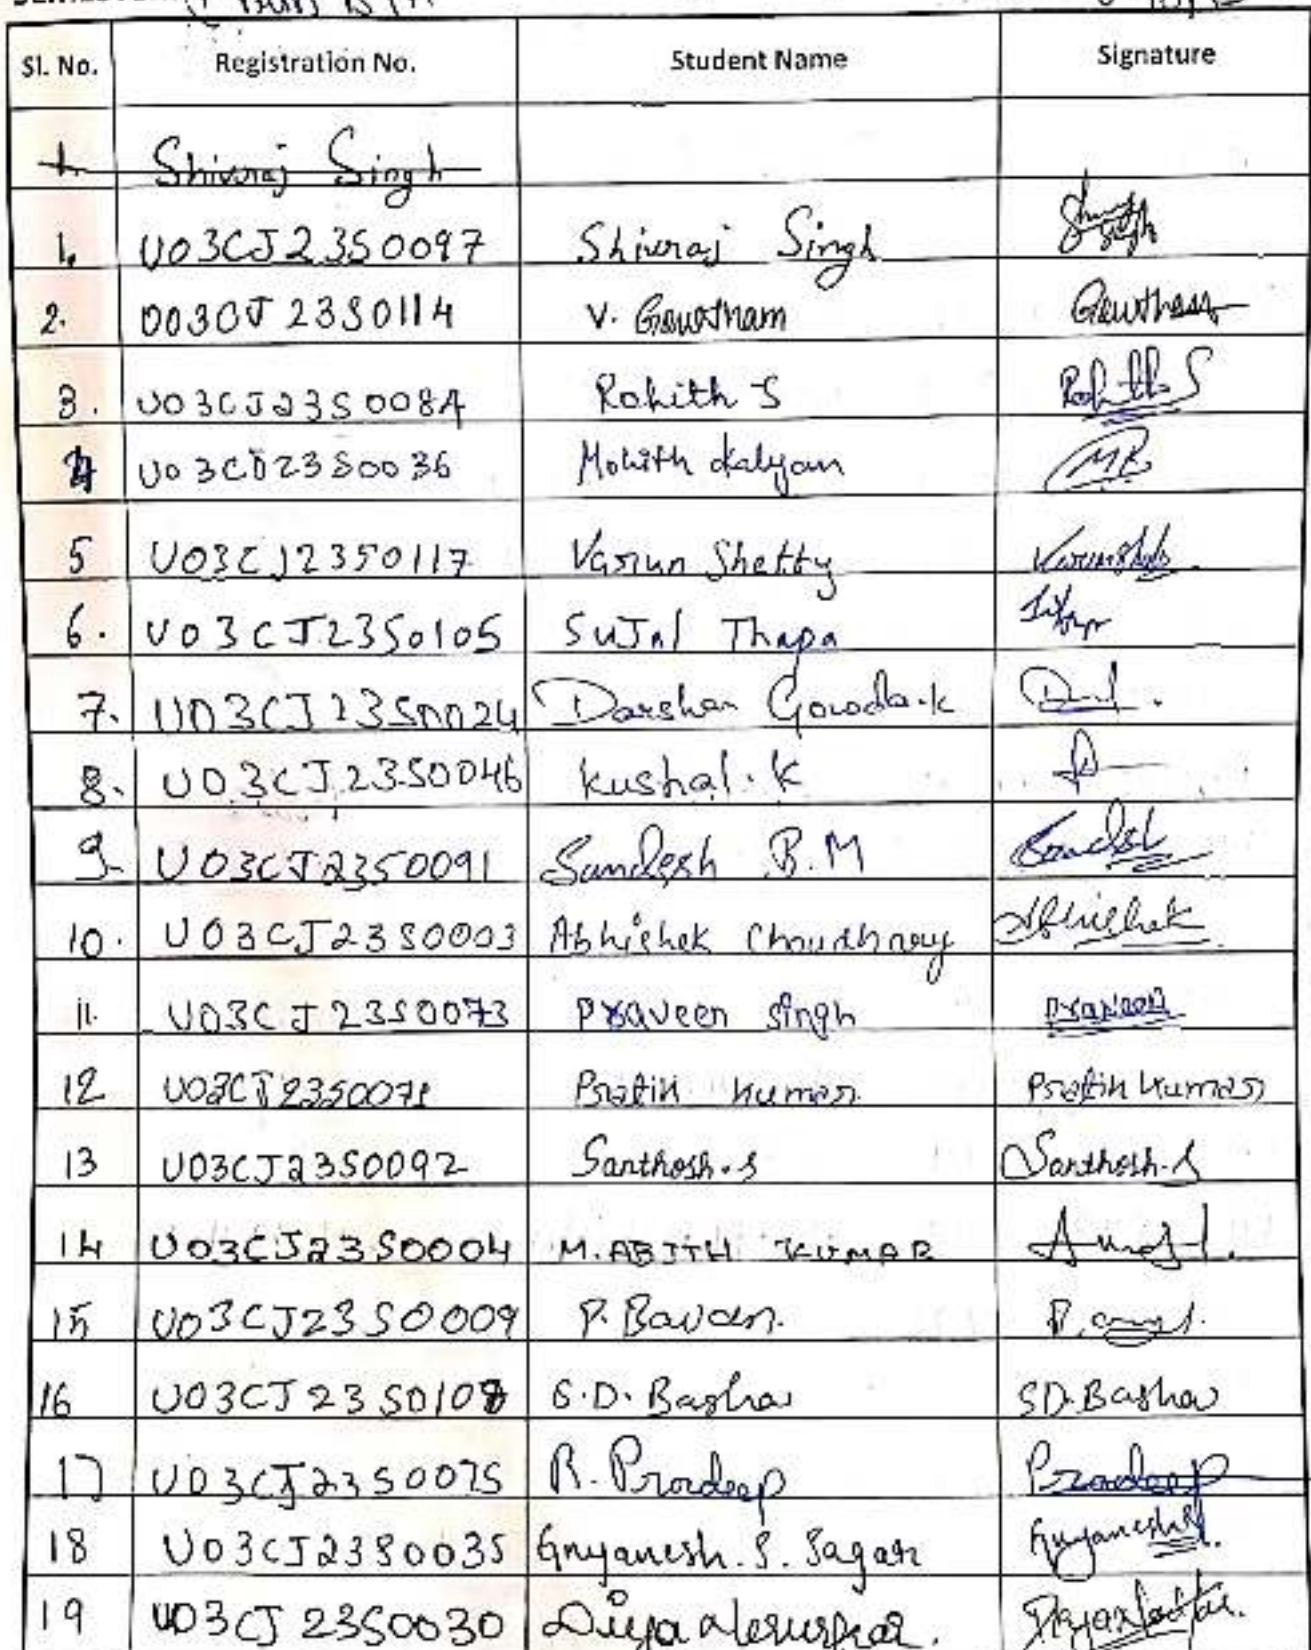 Sl. No. Registration No. Student Name Signature
1. Shivraj Singh
1. U03CJ23S0097 Shivraj Singh
2. 003CJ23S0114 V. Gowtham Gowtham
3. U03CJ23S0084 Rohith S Rohith S
4 U03CJ23S0036 Mohith Kalyan MK
5 U03CJ23S0117 Varun Shetty Varunshetty
6. U03CJ23S0105 SuJal Thapa
7. U03CJ23S0024 Darshan Gowda.k
8. U03CJ23S0046 kushal.k
9. U03CJ23S0091 Sandesh B.M Sandesh
10. U03CJ23S0003 Abhishek Choudhary Abhishek
11. U03CJ23S0073 Praveen Singh Praveen
12 U03CJ23S0071 Pratik Kumar Pratik Kumar
13 U03CJ23S0092 Santhosh.S Santhosh.S
14 U03CJ23S0004 M. ABJTH KUMAR
15 U03CJ23S0009 P. Bavan.
16 U03CJ23S0108 S.D. Basha SD. Basha
17 U03CJ23S0075 R. Pradeep Pradeep
18 U03CJ23S0035 Gnyanesh. S. Sagar Gnyanesh
19 U03CJ23S0030 Diya